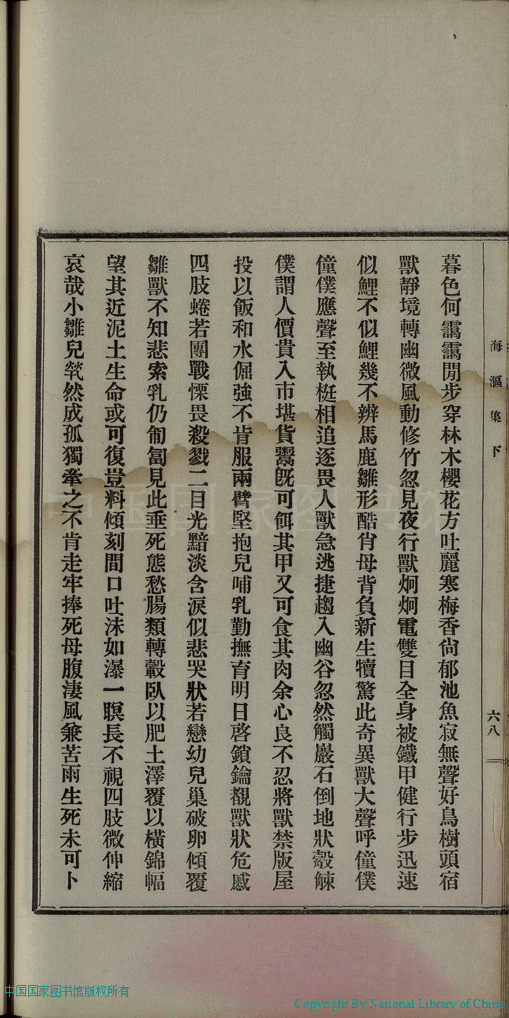 海漚集下
六八
暮色何靄靄閒步穿林木櫻花方吐麗寒梅香尙郁池魚寂無聲好鳥樹頭宿
獸靜境轉幽微風動修竹忽見夜行獸炯炯電雙目全身被鐵甲健行步迅速
似鯉不似鯉幾不辨馬鹿雛形酷肖母背負新生犢驚此奇異獸大聲呼僮僕
僮僕應聲至執梃相追逐畏人獸急逃捷趨入幽谷忽然觸巖石倒地狀觳觫
僕謂人價貴入市堪貨鬻旣可餌其甲又可食其肉余心良不忍將獸禁版屋
投以飯和水倔強不肯服兩臂堅抱兒哺乳勤撫育明日啓鎖鑰覩獸狀危慼
四肢蜷若團戰慄畏殺戮二目光黯淡含淚似悲哭狀若戀幼兒巢破卵傾覆
雛獸不知悲索乳仍匍匐見此垂死態愁腸類轉轂臥以肥土澤覆以橫錦幅
望其近泥土生命或可復豈料傾刻間口吐沫如瀑一瞑長不視四肢微伸縮
哀哉小雛兒煢然成孤獨牽之不肯走牢捧死母腹淒風兼苦雨生死未可卜
中国国家图书馆
中国国家图书馆版权所有
Copyright By National Library of China